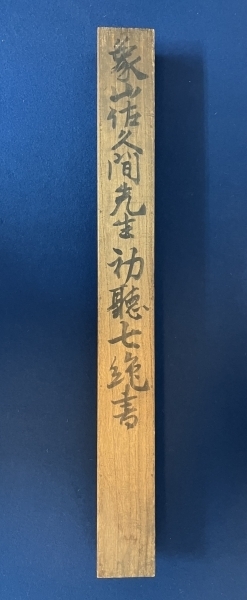 象山佐久間先生初聽七絶書